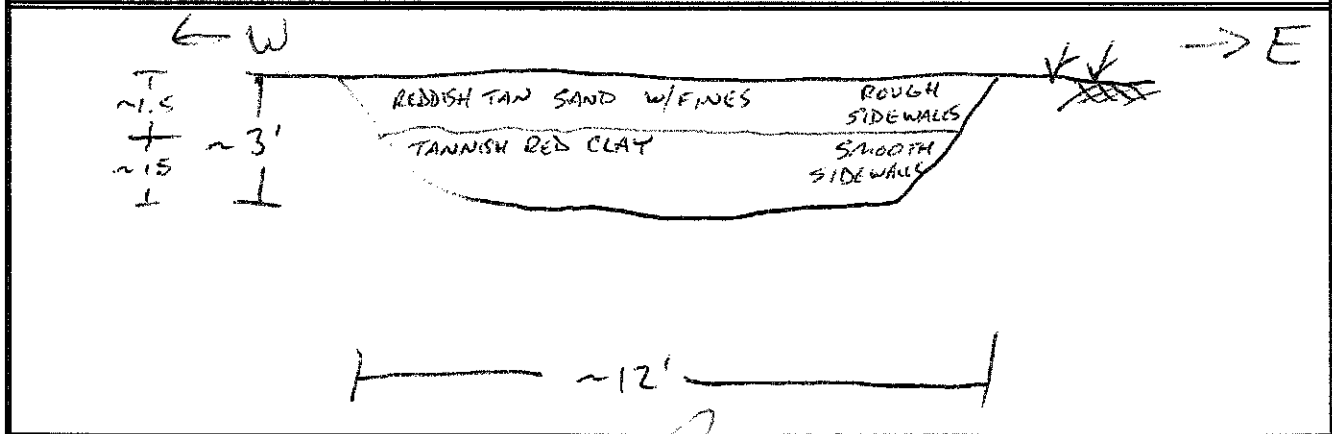 ← W
→ E
~1.5
~1.5
~3'
REDDISH TAN SAND W/FINES
ROUGH
SIDEWALLS
TANNISH RED CLAY
SMOOTH
SIDEWALLS
~12'